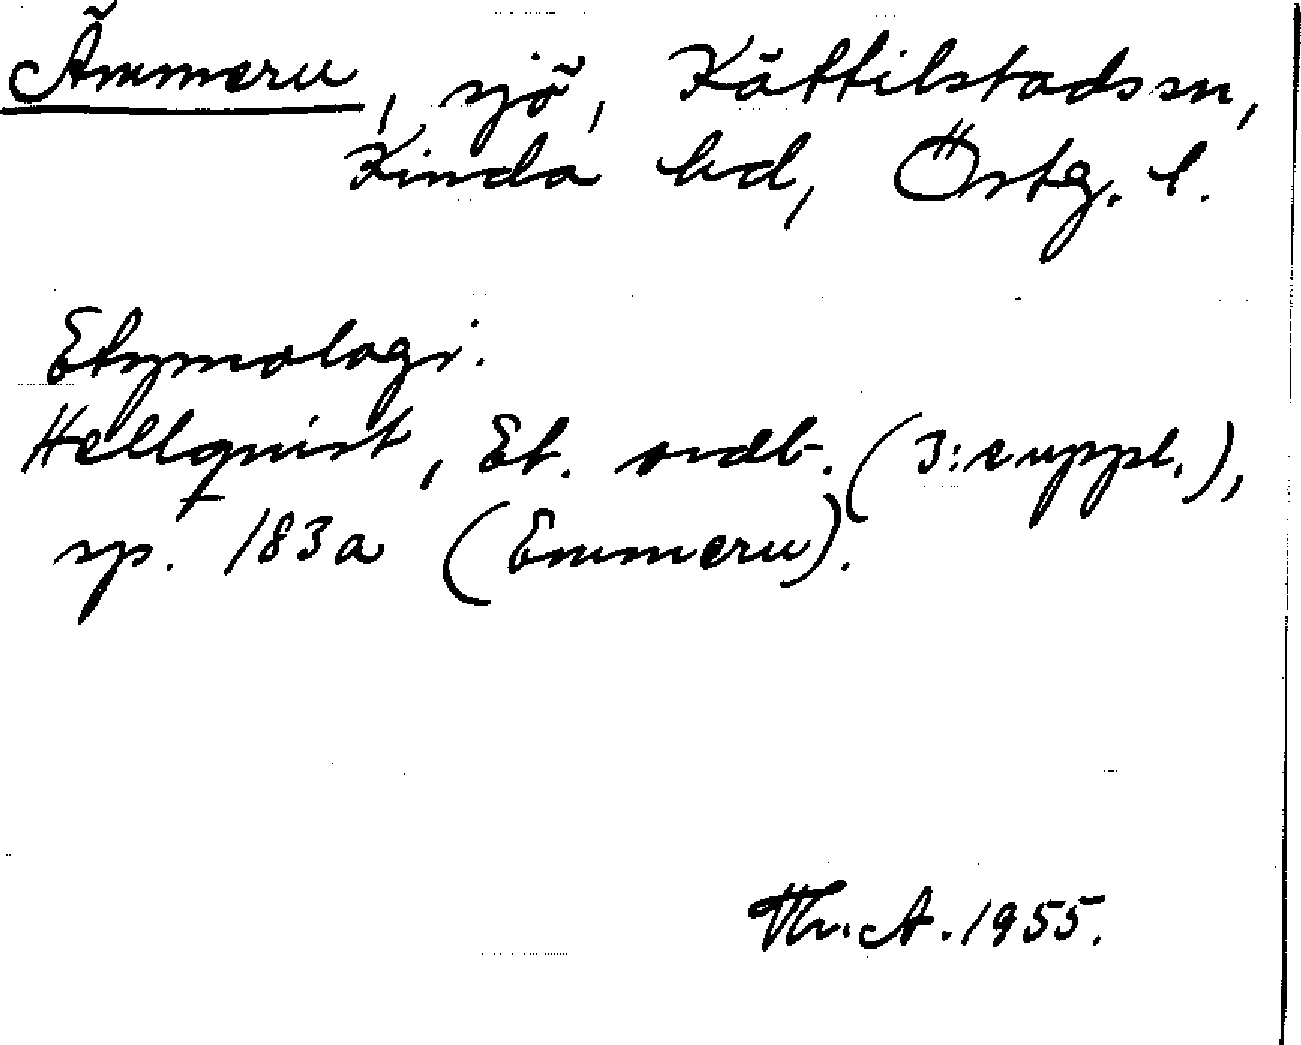 Ämmeru, sjö, Kättilstads sn,
Kinda hd, Östg. l.
Etymologi.
Hellquist, Et. ordb. (3: suppl.),
sp. 183a (Emmeru).
Th. A. 1955.